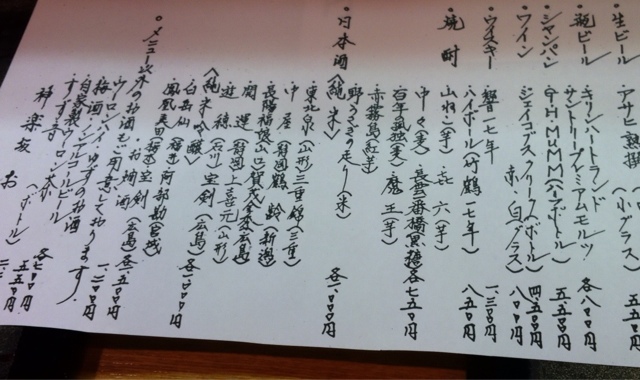 ・生ビール
アサヒ熟撰
(小グラス)
五五〇円
・瓶ビール
キリンハートランド
サントリープレミアムモルツ
各八〇〇円
・シャンパン
G・H・MUMM(ハーフボトル)
五、五〇〇円
・ワイン
ジェイコブスクリーク(ボトル)
四、五〇〇円
赤・白(グラス)
八〇〇円
・ウイスキー
響一七年
一、三〇〇円
ハイボール(竹鶴一七年)
八五〇円
・焼酎
山ねこ(芋) 㐂六(芋)
中々(麦) 長雲一番橋(黒糖)
各七五〇円
百年孤独(麦) 魔王(芋)
赤霧島(紅芋)
野うさぎの走り(米)
各一、〇〇〇円
・日本酒
(純米)
・東北泉(山形) 三重錦(三重)
・中屋 鶴齢(新潟)
・長陽福娘(山口) 賀茂金秀(広島)
・開運(静岡) 上喜元(山形)
・遊穂(石川) 宝剣(広島)
(純米吟醸)
各一、〇〇〇円
・白岳仙(福井) 阿部勘(宮城)
・鳳凰美田(栃木) 宝剣(広島)
各一、五〇〇円
・メニュー以外のお酒もご用意しております。
・梅酒
ウーロンハイ・ゆずのお酒
・自家製ウーロン茶
・ノンアルコールビール